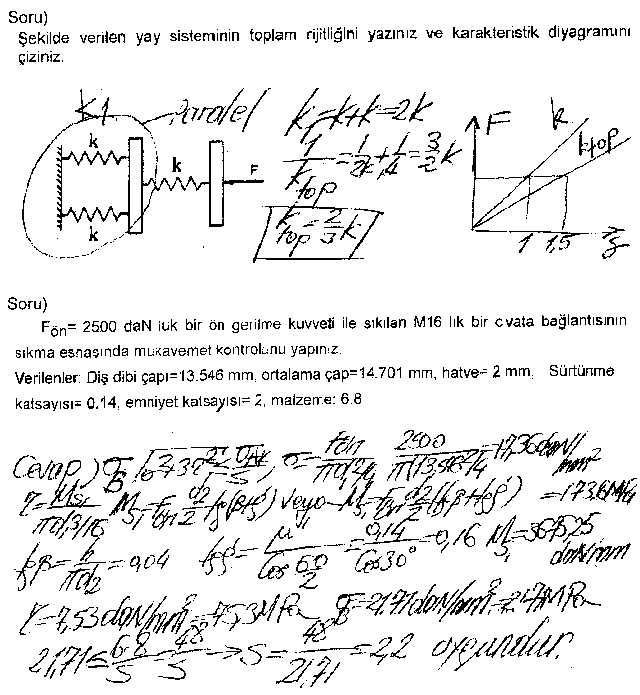 Soru)
Şekilde verilen yay sisteminin toplam rijitliğini yazınız ve karakteristik diyagramını
çiziniz.
K1 paralel
k
k
k
F
k1=k+k=2k
1/ktop=1/2k+1/k=3/2 k
ktop=2/3 k
F k ktop
1 1,5
Soru)
Fön= 2500 daN luk bir ön gerilme kuvveti ile sıkılan M16 lık bir cıvata bağlantısının
sıkma esnasında mukavemet kontrolunu yapınız.
Verilenler: Diş dibi çapı=13.546 mm, ortalama çap=14.701 mm, hatve= 2 mm, Sürtünme
katsayısı= 0.14, emniyet katsayısı= 2, malzeme: 6.8
Cevap) σB=√σ²+3τ²≤σAK/S, σ=Fön/πd1²/4 = 2500/π(13,546)²/4 = 17,36 daN/mm²
τ=Ms1/πd1³/16 Ms1=Fön d2/2 tg(β+ρ') veya Ms1=Fön d2/2 (tgβ+tgρ') =173,6MPa
tgβ=h/πd2=0,04 tgρ'=μ/Cos 60/2=0,14/Cos30°=0,16 Ms1=3675,25 daNmm
τ=7,53daN/mm²=75,3MPa σB=21,71daN/mm²=217MPa
21,71≤6.8/S=48/S→S=48/21,71=2,2 uygundur.